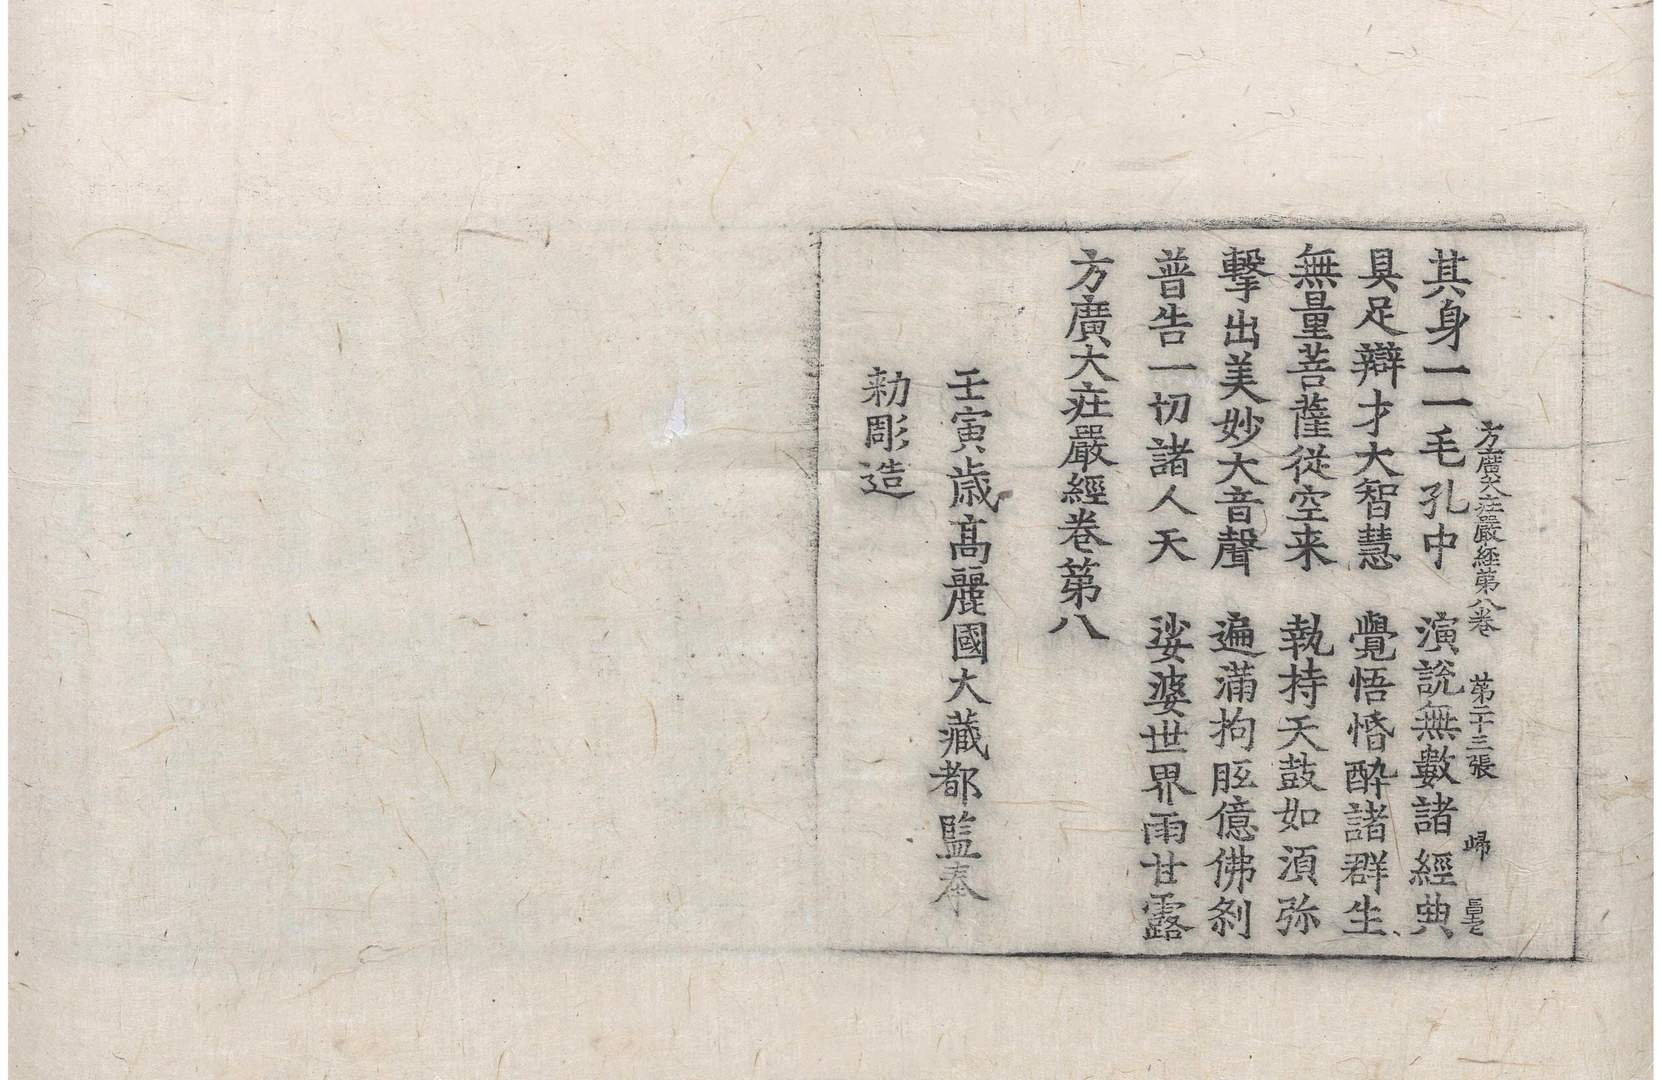 方廣大莊嚴經第八卷　第二十三張　歸
其身一一毛孔中　演說無數諸經典
具足辯才大智慧　覺悟惛醉諸群生
無量菩薩從空来　執持天鼓如湏弥
擊出美妙大音聲　遍滿拘胝億佛剎
普告一切諸人天　娑婆世界雨甘露
方廣大莊嚴經卷第八
壬寅歲高麗國大藏都監奉
勅彫造